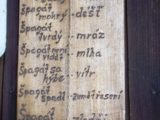 Špagát
mokrý -- déšť
Špagát
tvrdý -- mráz
Špagát není
vidět -- mlha
Špagát se
hýbe -- vítr
Špagát
spadl - zemětřesení
Špagát